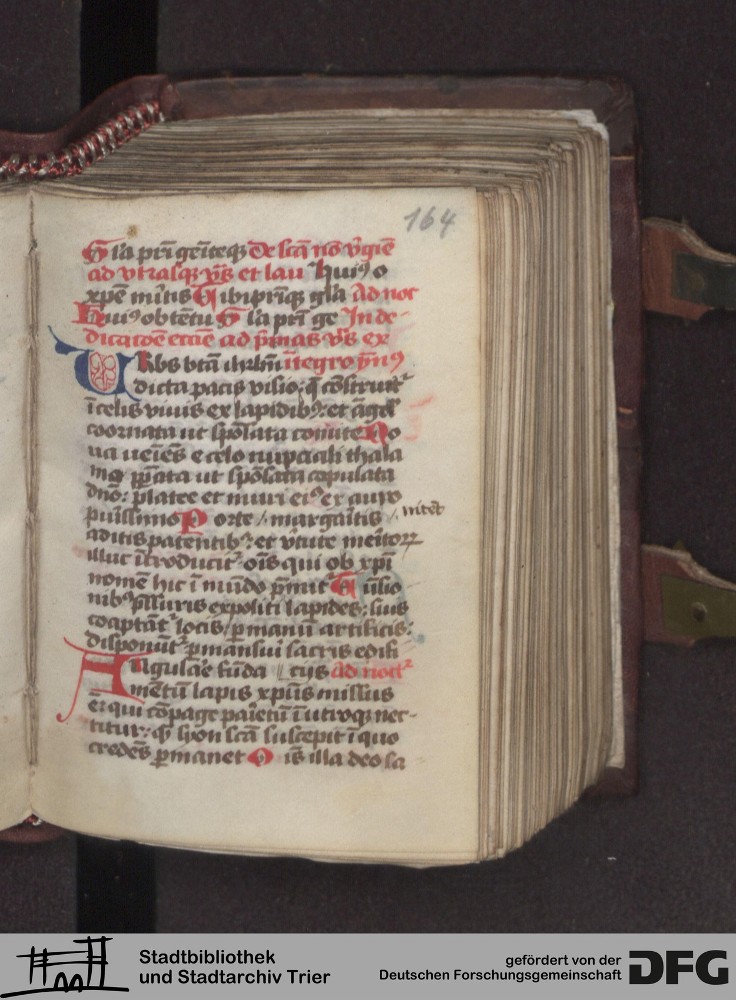 164
Gl'a pr̄i geīteqʒ De sctā nō v̓giē
ad vtrasqʒ vs̄ et lau huiꝰ o
xp̄e mītis Tibi p̄riqʒ gl'a Ad noc
Huiꝰ obtētu Gl'a pr̄i ge In de-
dicatōe eccīe ad p̄mas vs̄ ex
Urbs btā ihrlm̄ ītegro p̄nꝰ
dicta pacis visio: q̄ cōstruit᷑
ī celis viuis ex lapidibꝰ: et āgel'
coornata ut spōsata comite No
ua ueiēs e celo nupciali thala
mo pp̄ata ut spōsata copulata
dn̄o: platee et muri eiꝰ ex auro
purissimo Porte / margāitis / nitēt
aditis patentibꝰ: et v̓tute meītoꝝ
illuc ītroducit᷑ oīs qui ob xp̄i
nomē hic ī mūdo p̄mit᷑ Tūsio
nibꝰ p̄ssuris expoliti lapides: suis
coaptāt᷑ locis / p manū artificis:
disponūt᷑ pmansui sacris edifi
Angulāe fūda || cijs ad noct᷑
mētū lapis xp̄us missus
ē: qui cōpage paīetū ī utroqʒ nec-
titur: q̄ syon sctā suscepit ī quo
credēs pmanet Oīs illa deo sa
Stadtbibliothek
und Stadtarchiv Trier
gefördert von der
Deutschen Forschungsgemeinschaft
DFG